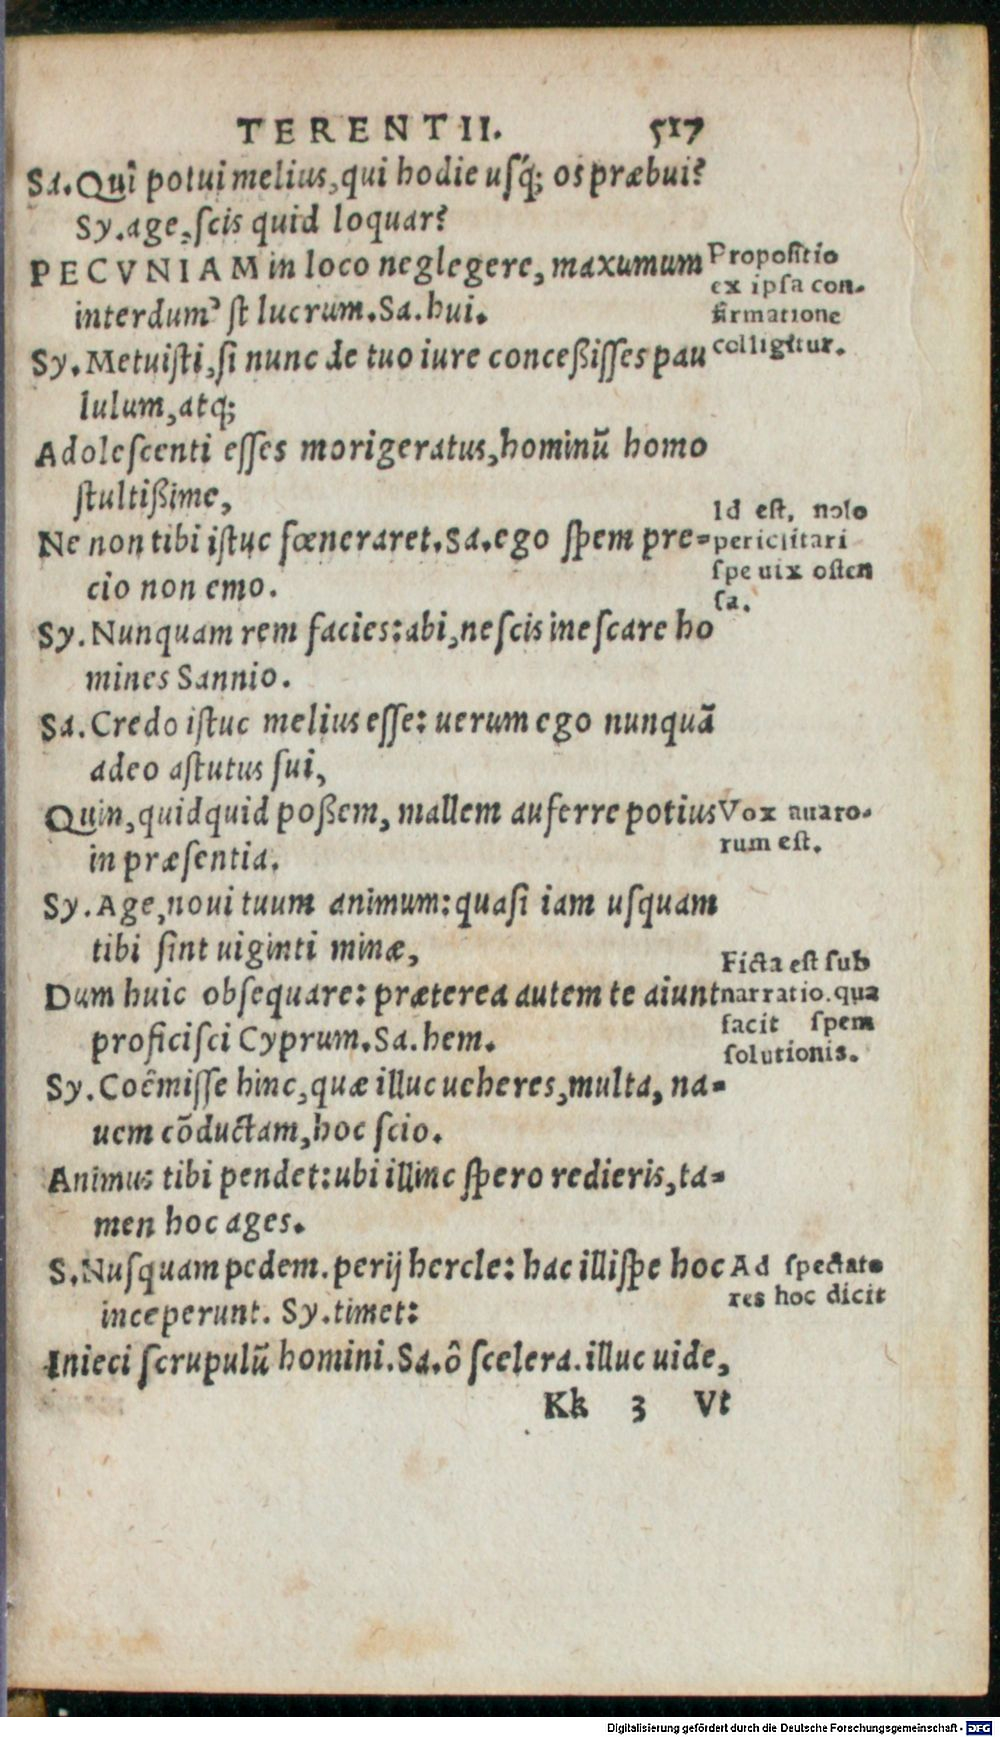 TERENTII. 517
Sa. Quî potui melius, qui hodie uſq́; os præbui?
Sy. age, ſcis quid loquar?
PECVNIAM in loco neglegere, maxumum
interdum' ſt lucrum. Sa. hui.
Sy. Metuiſti, ſi nunc de tuo iure conceßiſſes pau
lulum, atq;
Adoleſcenti eſſes morigeratus, hominū homo
ſtultißime,
Ne non tibi iſtuc fœneraret. Sa. ego ſpem pre-
cio non emo.
Sy. Nunquam rem facies: abi, neſcis ineſcare ho
mines Sannio.
Sa. Credo iſtuc melius eſſe: uerum ego nunquā
adeo aſtutus fui,
Quin, quidquid poßem, mallem auferre potius
in præſentia.
Sy. Age, noui tuum animum: quaſi iam uſquam
tibi ſint uiginti minæ,
Dum huic obſequare: præterea autem te aiunt
proficiſci Cyprum. Sa. hem.
Sy. Coēmiſſe hinc, quæ illuc ueheres, multa, na-
uem cōductam, hoc ſcio.
Animus tibi pendet: ubi illinc ſpero redieris, ta-
men hoc ages.
S. Nuſquam pedem. perij hercle: hac illi ſpe hoc
inceperunt. Sy. timet:
Inieci ſcrupulū homini. Sa. ô ſcelera. illuc uide,
Kk 3 Vt
Propoſitio
ex ipſa con-
firmatione
colligitur.
Id eſt, nolo
periclitari
ſpe uix oſten
ſa.
Vox auaro-
rum eſt.
Ficta eſt ſub
narratio. qua
facit ſpem
ſolutionis.
Ad ſpectato
res hoc dicit
Digitalisierung gefördert durch die Deutsche Forschungsgemeinschaft - DFG